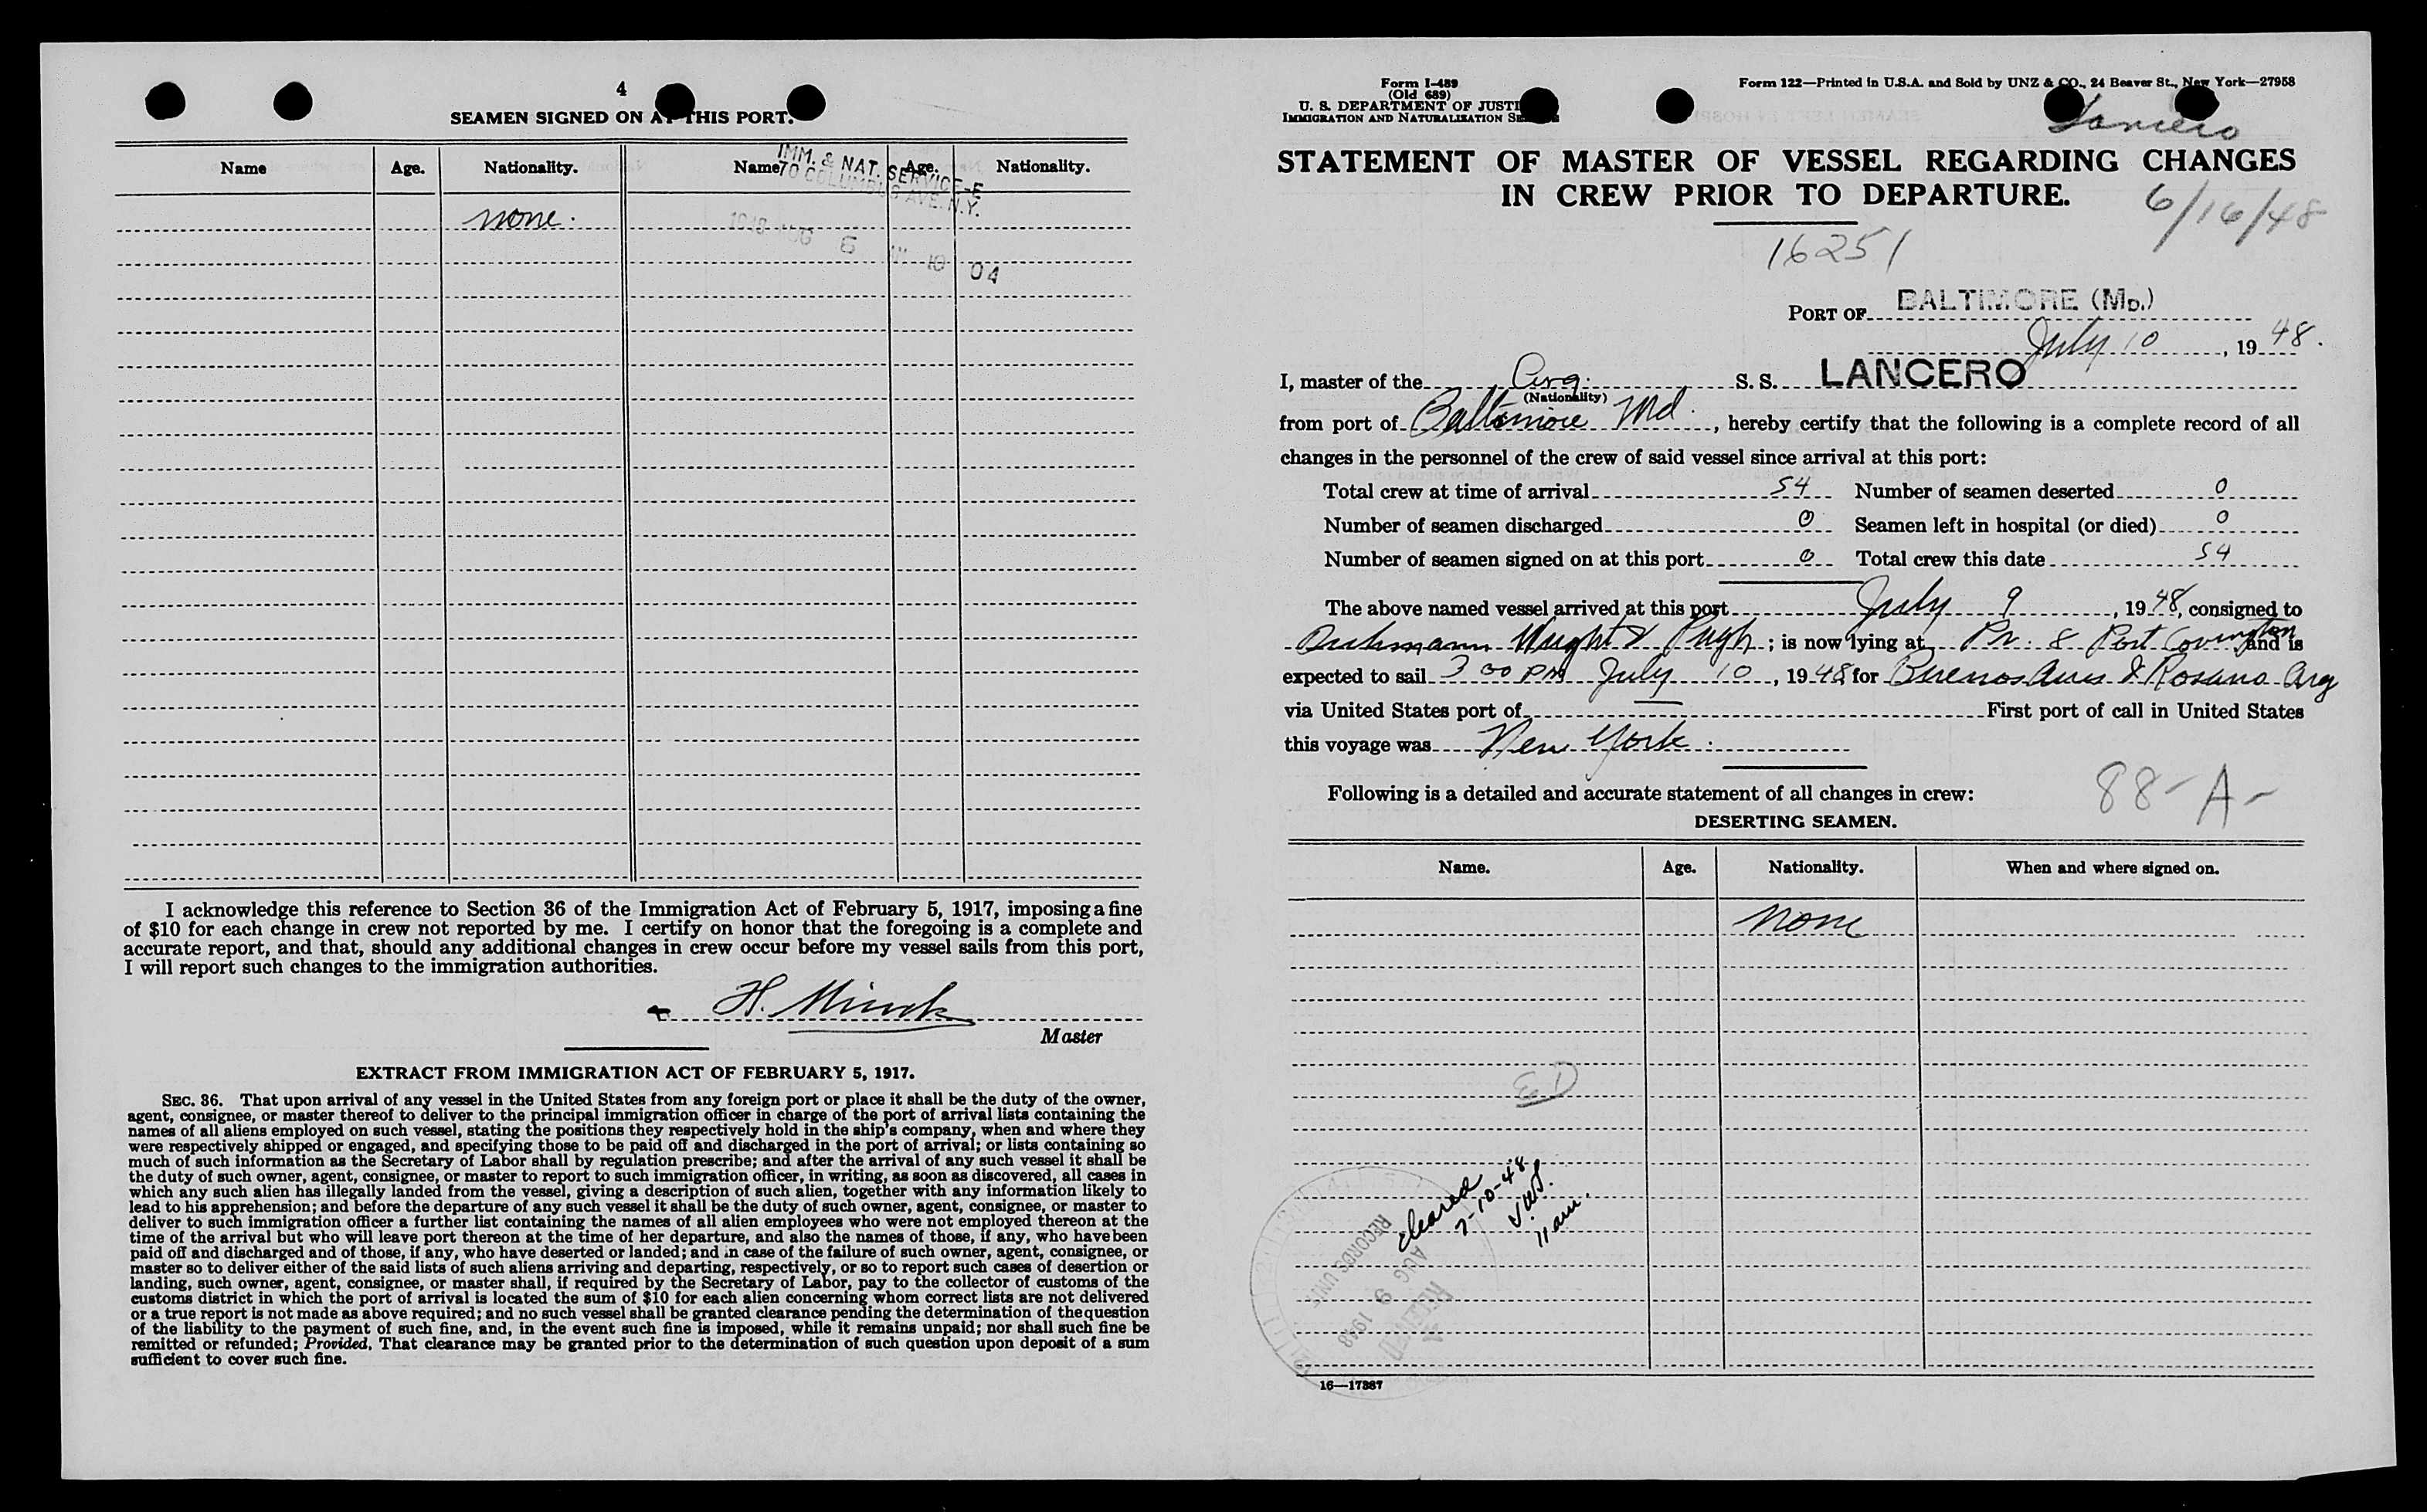 4
SEAMEN SIGNED ON AT THIS PORT.
Name Age. Nationality. Name Age. Nationality.
IMM. & NAT. SERVICE-E
70 COLUMBUS AVE. N.Y.
1948 AUG 6 AM 10 04
none.
I acknowledge this reference to Section 36 of the Immigration Act of February 5, 1917, imposing a fine
of $10 for each change in crew not reported by me. I certify on honor that the foregoing is a complete and
accurate report, and that, should any additional changes in crew occur before my vessel sails from this port,
I will report such changes to the immigration authorities.
H.
Master
EXTRACT FROM IMMIGRATION ACT OF FEBRUARY 5, 1917.
SEC. 36. That upon arrival of any vessel in the United States from any foreign port or place it shall be the duty of the owner,
agent, consignee, or master thereof to deliver to the principal immigration officer in charge of the port of arrival lists containing the
names of all aliens employed on such vessel, stating the positions they respectively hold in the ship's company, when and where they
were respectively shipped or engaged, and specifying those to be paid off and discharged in the port of arrival; or lists containing so
much of such information as the Secretary of Labor shall by regulation prescribe; and after the arrival of any such vessel it shall be
the duty of such owner, agent, consignee, or master to report to such immigration officer, in writing, as soon as discovered, all cases in
which any such alien has illegally landed from the vessel, giving a description of such alien, together with any information likely to
lead to his apprehension; and before the departure of any such vessel it shall be the duty of such owner, agent, consignee, or master to
deliver to such immigration officer a further list containing the names of all alien employees who were not employed thereon at the
time of the arrival but who will leave port thereon at the time of her departure, and also the names of those, if any, who have been
paid off and discharged and of those, if any, who have deserted or landed; and in case of the failure of such owner, agent, consignee, or
master so to deliver either of the said lists of such aliens arriving and departing, respectively, or so to report such cases of desertion or
landing, such owner, agent, consignee, or master shall, if required by the Secretary of Labor, pay to the collector of customs of the
customs district in which the port of arrival is located the sum of $10 for each alien concerning whom correct lists are not delivered
or a true report is not made as above required; and no such vessel shall be granted clearance pending the determination of the question
of the liability to the payment of such fine, and, in the event such fine is imposed, while it remains unpaid; nor shall such fine be
remitted or refunded; Provided, That clearance may be granted prior to the determination of such question upon deposit of a sum
sufficient to cover such fine.
Form I-489
(Old 689)
U. S. DEPARTMENT OF JUSTI
IMMIGRATION AND NATURALIZATION SE
Form 122—Printed in U.S.A. and Sold by UNZ & CO., 24 Beaver St., New York—27958
Lancero
STATEMENT OF MASTER OF VESSEL REGARDING CHANGES
IN CREW PRIOR TO DEPARTURE.
6/16/48
16251
PORT OF BALTIMORE (MD.)
July 10, 1948.
I, master of the Arg. S. S. LANCERO
(Nationality)
from port of Baltimore Md., hereby certify that the following is a complete record of all
changes in the personnel of the crew of said vessel since arrival at this port:
Total crew at time of arrival 54 Number of seamen deserted 0
Number of seamen discharged 0 Seamen left in hospital (or died) 0
Number of seamen signed on at this port 0 Total crew this date 54
The above named vessel arrived at this port July 9, 1948, consigned to
Wright & Pugh; is now lying at Pr. 8 Port Covington and is
expected to sail 3 00 PM July 10, 1948 for Buenos Aires & Rosario Arg
via United States port of — First port of call in United States
this voyage was New York.
Following is a detailed and accurate statement of all changes in crew:
88-A-
DESERTING SEAMEN.
Name. Age. Nationality. When and where signed on.
None
ED
cleared
7-10-48
11 am.
RECORDS UNIT
AUG 9 1948
16—17387